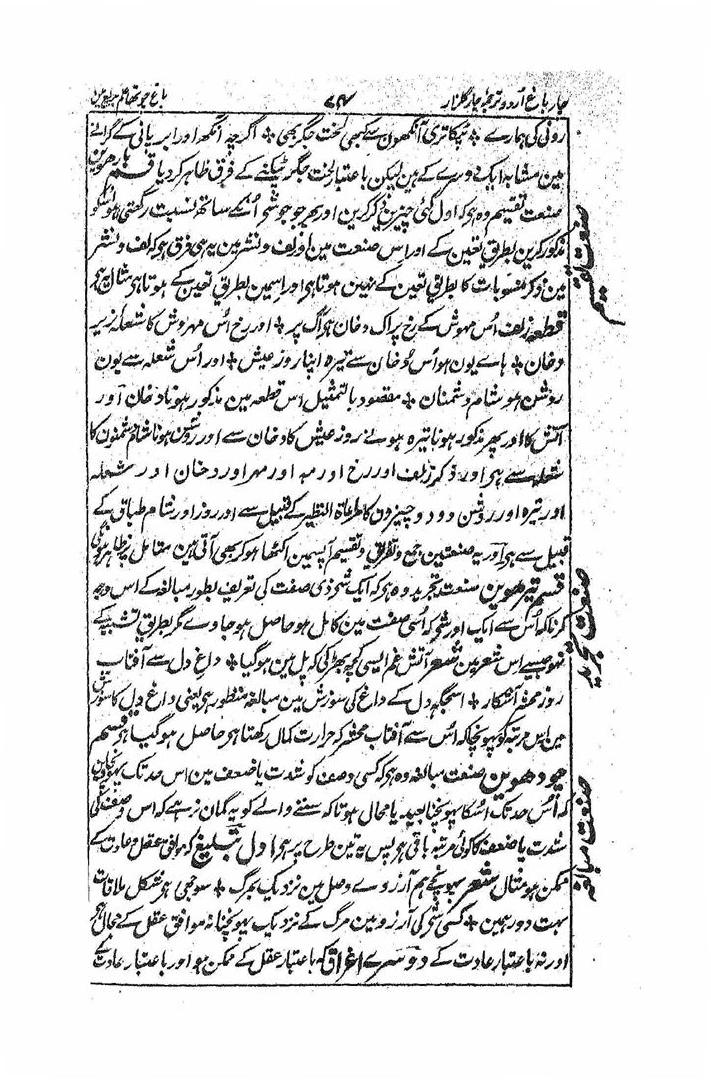 چار باغ اُردو ترجمۂ چار گلزار
باغ چوتھا علم بدیع مین
رونی کی ہمارے ٭ ٹپکا تری آنکھون سے کبھی لخت جگر بھی ٭ اگرچہ آنکھ اور ابر پانی کے گرانے
مین مشابہ ایک دوسرے کے ہین لیکن باعتبار لخت جگر ٹپکنے کے فرق ظاہر کر دیا قسم بارھوین
صنعت تقسیم وہ ہی کہ اول کئی چیزین ذکر کرین اور پھر جو جو شی اُنکے ساتھ نسبت رکھتی ہو اُسکو
مذکور کرین بطریق تعین کے اور اس صنعت مین اور لف و نشر مین یہ ہی فرق ہی کہ لف و نشر
مین ذکر منسوبات کا بطریق تعین کے نہین ہوتا ہی اور اسمین بطریق تعین کے ہوتا ہی مثال یہ ہی
قطعہ زلف اُس مہوش کے رخ پر اک دخان ہی آگ پر ٭ اور رخ اُس مہروش کا شعلہ زیر
دخان ٭ ہاے یون ہو اُس دخان سے تیرہ اپنا روز عیش ٭ اور اُس شعلہ سے یون
روشن ہو شام دشمنان ٭ مقصود بالتمثیل اس قطعہ مین مذکور ہونا دخان اور
آتش کا اور پھر مذکور ہونا تیرہ ہونے روز عیش کا دخان سے اور روشن ہونا شام دشمنون کا
شعلہ سے ہی اور ذکر زلف اور رخ اور مہ اور مہر اور دخان اور شعلہ
اور تیرہ اور روشن دو دو چیزون کا مراعاۃ النظیر کے قبیل سے اور روز اور شام طباق کے
قبیل سے ہی اور یہ صنعتین جمع و تفریق و تقسیم آپسمین اکٹھا ہو کر بھی آتی ہین متامل پر ظاہر ہونگی
قسم تیرھوین صنعت تجرید وہ ہی کہ ایک شی ذی صفت کی تعریف بطور مبالغہ کے اس وجہ
کرنا کہ اُس سے ایک اور شی کہ اُسی صفت مین کامل ہو حاصل ہو جاوے مگر بطریق تشبیہ کے
نہو جیسے اس شعر مین شعر آتش غم ایسی کچھ بھڑکی کہ پل مین ہو گیا ٭ داغ دل سے آفتاب
روز محشر آشکار ٭ اسجگہ دل کے داغ کی سوزش مین مبالغہ منظور ہی یعنی داغ دل کا سوزش
مین اس مرتبہ کو پہونچا کہ اُس سے آفتاب محشر کہ حرارت کمال رکھتا ہی حاصل ہو گیا قسم
چودھوین صنعت مبالغہ وہ ہی کہ کسی وصف کو شدت یا ضعف مین اس حد تک پہونچا دین
کہ اُس حد تک اُسکا پہونچنا بعید یا محال ہو تا کہ سننے والے کو یہ گمان نرہے کہ اس وصف کی
شدت یا ضعف کا کوئی مرتبہ باقی ہی پس یہ تین طرح پر ہی اول تبلیغ کہ موافق عقل و عادت کے
ممکن ہو مثال شعر پہونچے ہم آرزوے وصل مین نزدیک بمرگ ٭ سوجھی ہر شکل ملاقات
بہت دور ہمین ٭ کسی شی کی آرزو مین مرگ کے نزدیک پہونچنا نہ موافق عقل کے محال ہی
اور نہ باعتبار عادت کے دوسرے اغراق کہ باعتبار عقل کے ممکن ہو اور باعتبار عادت کے
صنعت تقسیم
صنعت تجرید
صنعت مبالغہ